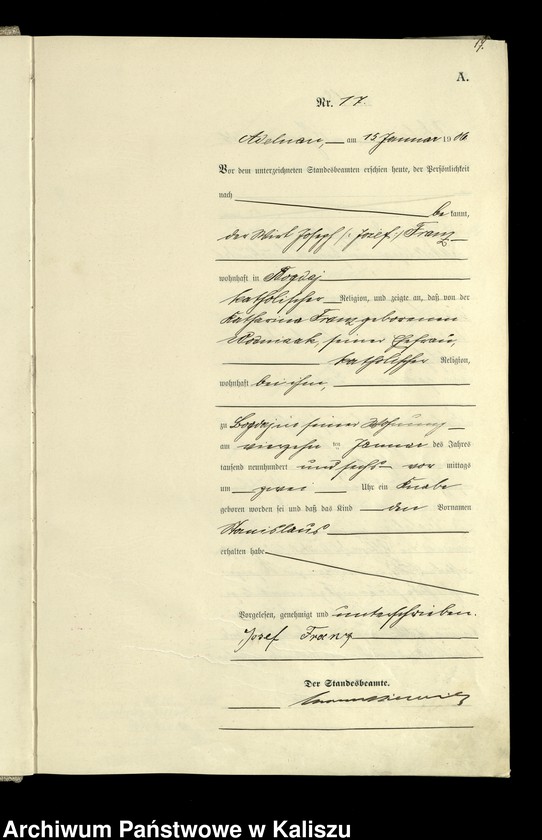 17.
A.
Nr. 17.
Adelnau, am 15 Januar 1906.
Vor dem unterzeichneten Standesbeamten erschien heute, der Persönlichkeit
nach
be kannt,
der Wirt Joseph (: Józef :) Franz
wohnhaft in Bogdaj
katholischer Religion, und zeigte an, daß von der
Katharina Franz geborenen
seiner Ehefrau,
katholischer Religion,
wohnhaft bei ihm,
zu Bogdaj in seiner Wohnung
am vierzehn ten Januar des Jahres
tausend neunhundert und sechs vor mittags
um zwei Uhr ein Knabe
geboren worden sei und daß das Kind den Vornamen
Stanislaus
erhalten habe.
Vorgelesen, genehmigt und unterschrieben.
Jozef Franz
Der Standesbeamte.
Archiwum Państwowe w Kaliszu